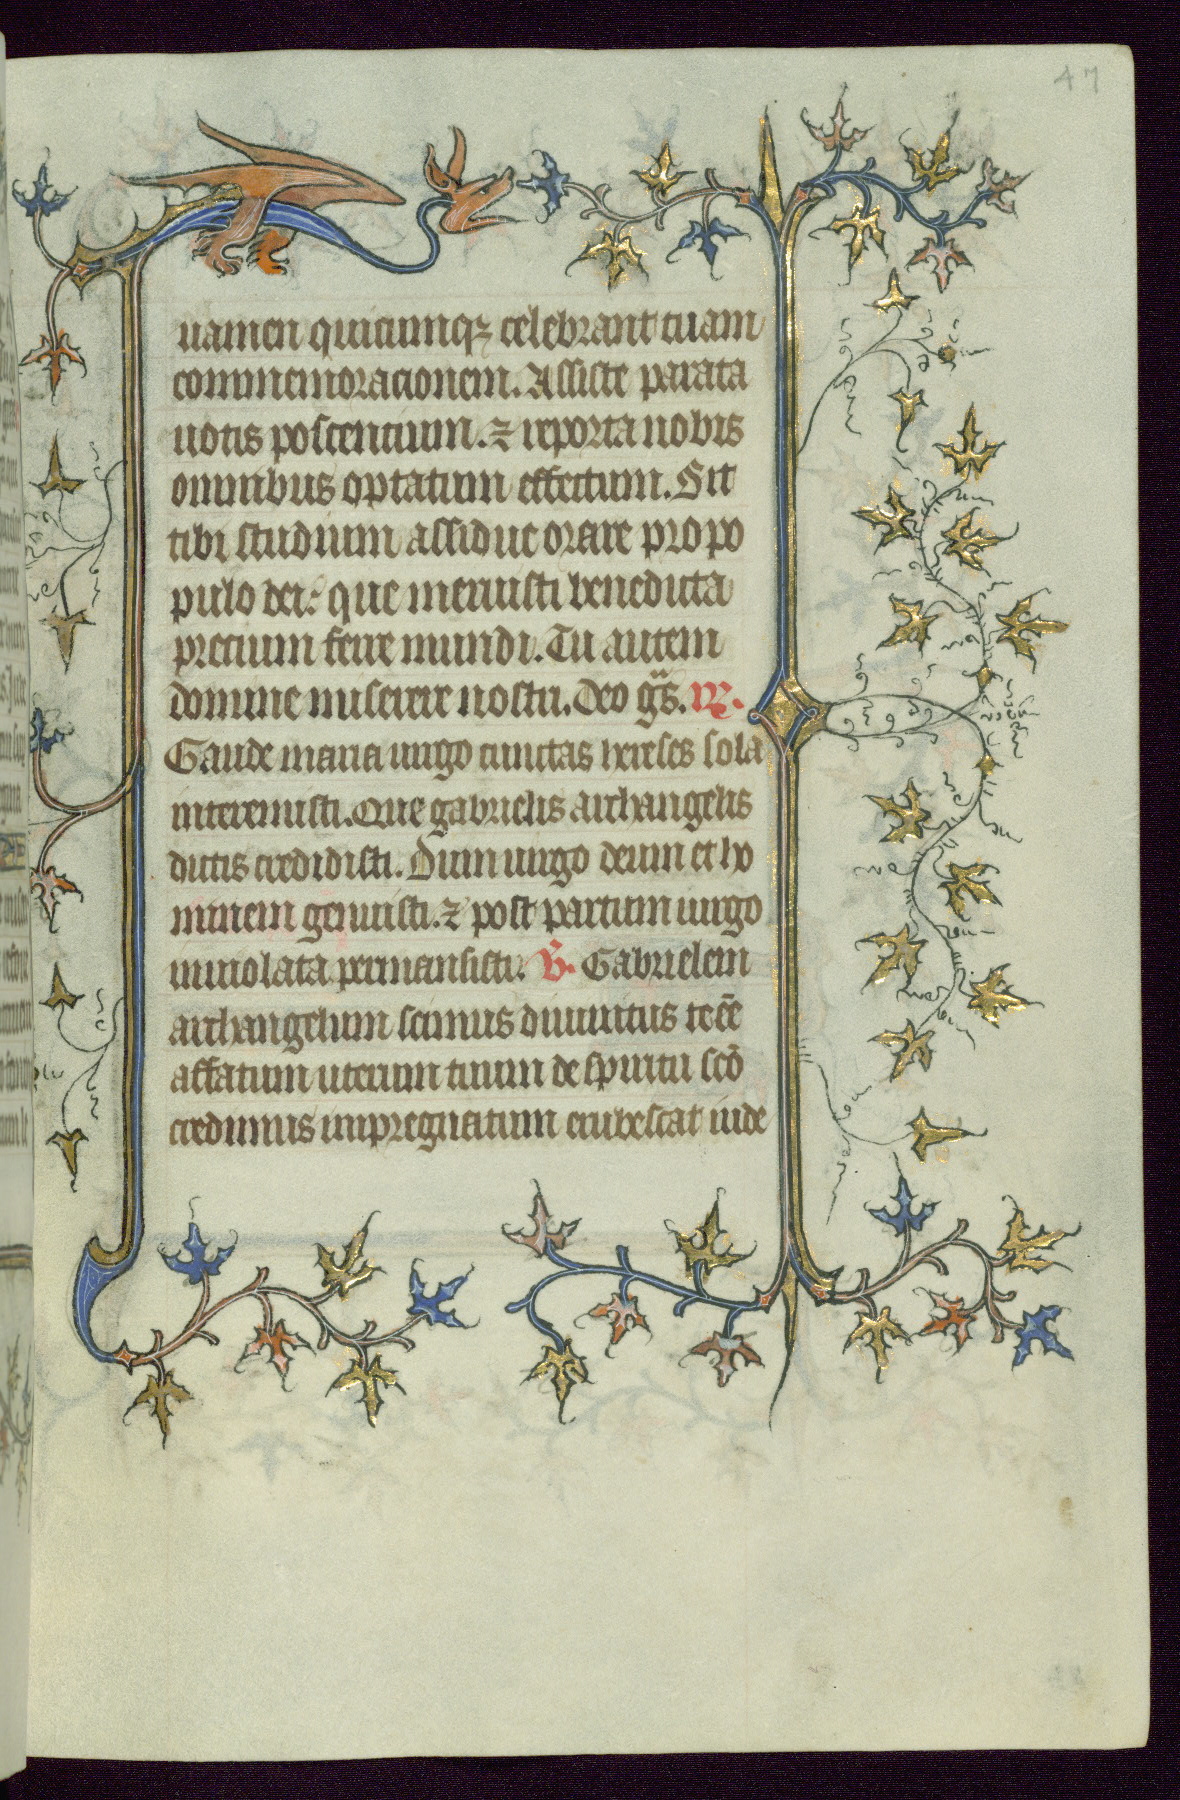 47
uamen quicumqz celebrant tuam
commemoracionem. Assiste parata
uotis poscencium. ⁊ reporta nobis
omnibus optatum effectum. Sit
tibi studium assidue orare pro po
pulo dei: que meruisti benedicta
precium ferre mundi. Tu autem
domine miserere nostri. Deo gr̃s. R.
Gaude maria uirgo cunctas hereses sola
interemisti. Que gabrielis archangelis
dictis credidisti. Dum uirgo deum et ho
minem genuisti. ⁊ post partum uirgo
inuiolata permansisti. V. Gabrielem
archangelum scimus diuinitus te eē
affatum uterum tuum de spiritu scō
credimus impregnatum erubescat iude